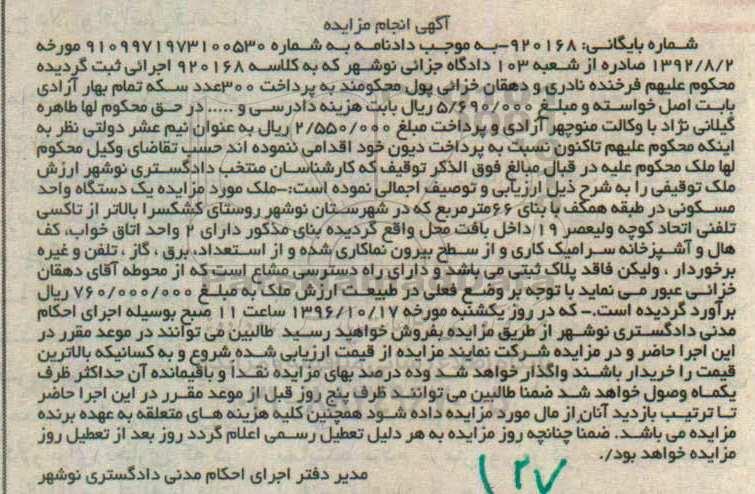 آگهی انجام مزایده
شماره بایگانی: ۹۲۰۱۶۸-به موجب دادنامه به شماره ۹۱۰۹۹۷۱۹۷۳۱۰۰۵۳۰ مورخه
۱۳۹۲/۸/۲ صادره از شعبه ۱۰۳ دادگاه جزائی نوشهر که به کلاسه ۹۲۰۱۶۸ اجرائی ثبت گردیده
محکوم علیهم فرخنده نادری و دهقان خزائی پول محکومند به پرداخت ۳۰۰عدد سکه تمام بهار آزادی
بابت اصل خواسته و مبلغ ۵/۶۹۰/۰۰۰ ریال بابت هزینه دادرسی و ..... در حق محکوم لها طاهره
گیلانی نژاد با وکالت منوچهر آزادی و پرداخت مبلغ ۲/۵۵۰/۰۰۰ ریال به عنوان نیم عشر دولتی نظر به
اینکه محکوم علیهم تاکنون نسبت به پرداخت دیون خود اقدامی ننموده اند حسب تقاضای وکیل محکوم
لها ملک محکوم علیه در قبال مبالغ فوق الذکر توقیف که کارشناسان منتخب دادگستری نوشهر ارزش
ملک توقیفی را به شرح ذیل ارزیابی و توصیف اجمالی نموده است:-ملک مورد مزایده یک دستگاه واحد
مسکونی در طبقه همکف با بنای ۶۶مترمربع که در شهرستان نوشهر روستای کشکسرا بالاتر از تاکسی
تلفنی اتحاد کوچه ولیعصر ۱۹ داخل بافت محل واقع گردیده بنای مذکور دارای ۲ واحد اتاق خواب، کف
هال و آشپزخانه سرامیک کاری و از سطح بیرون نماکاری شده و از استعداد، برق ، گاز ، تلفن و غیره
برخوردار ، ولیکن فاقد پلاک ثبتی می باشد و دارای راه دسترسی مشاع است که از محوطه آقای دهقان
خزائی عبور می نماید با توجه بر وضع فعلی در طبیعت ارزش ملک به مبلغ ۷۶۰/۰۰۰/۰۰۰ ریال
برآورد گردیده است.- که در روز یکشنبه مورخه ۱۳۹۶/۱۰/۱۷ ساعت ۱۱ صبح بوسیله اجرای احکام
مدنی دادگستری نوشهر از طریق مزایده بفروش خواهید رسید  طالبین می توانند در موعد مقرر در
این اجرا حاضر و در مزایده شرکت نمایند مزایده از قیمت ارزیابی شده شروع و به کسانیکه بالاترین
قیمت را خریدار باشند واگذار خواهد شد وده درصد بهای مزایده نقداً و باقیمانده آن حداکثر ظرف
یکماه وصول خواهد شد ضمنا طالبین می توانند ظرف پنج روز قبل از موعد مقرر در این اجرا حاضر
تا ترتیب بازدید آنان از مال مورد مزایده داده شود همچنین کلیه هزینه های متعلقه به عهده برنده
مزایده می باشد. ضمنا چنانچه روز مزایده به هر دلیل تعطیل رسمی اعلام گردد روز بعد از تعطیل روز
مزایده خواهد بود/.
مدیر دفتر اجرای احکام مدنی دادگستری نوشهر
۱۲۷